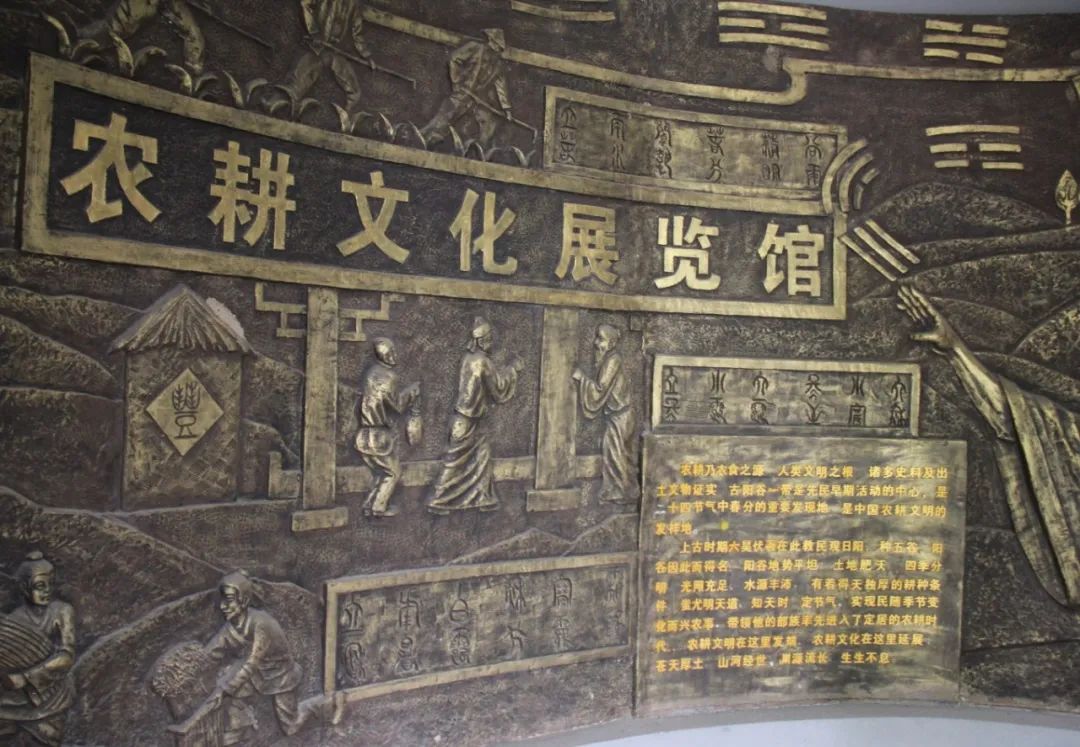 立春 雨水 驚蟄 春分 清明 谷雨
农耕文化展览馆
豐
立夏 小滿
农耕乃农食之源 人类文明之根 诸多史料及出
土文物证实 古阳谷一带是先民早期活动的中心，是
二十四节气中春分的重要发现地 是中国农耕文明的
发祥地。
上古时期太昊伏羲在此教民观日阳 种五谷 阳
谷因此而得名 阳谷地势平坦 土地肥沃 四季分
明 光照充足 水源丰沛 有着得天独厚的耕种条
件 蚩尤明天道 知天时 定节气 实现民随季节变
化而兴农事，带领他的部族率先进入了定居的农耕时
代。 农耕文明在这里发端 农耕文化在这里延展
苍天厚土 山河经世，渊源流长 生生不息
立秋 白露 秋分